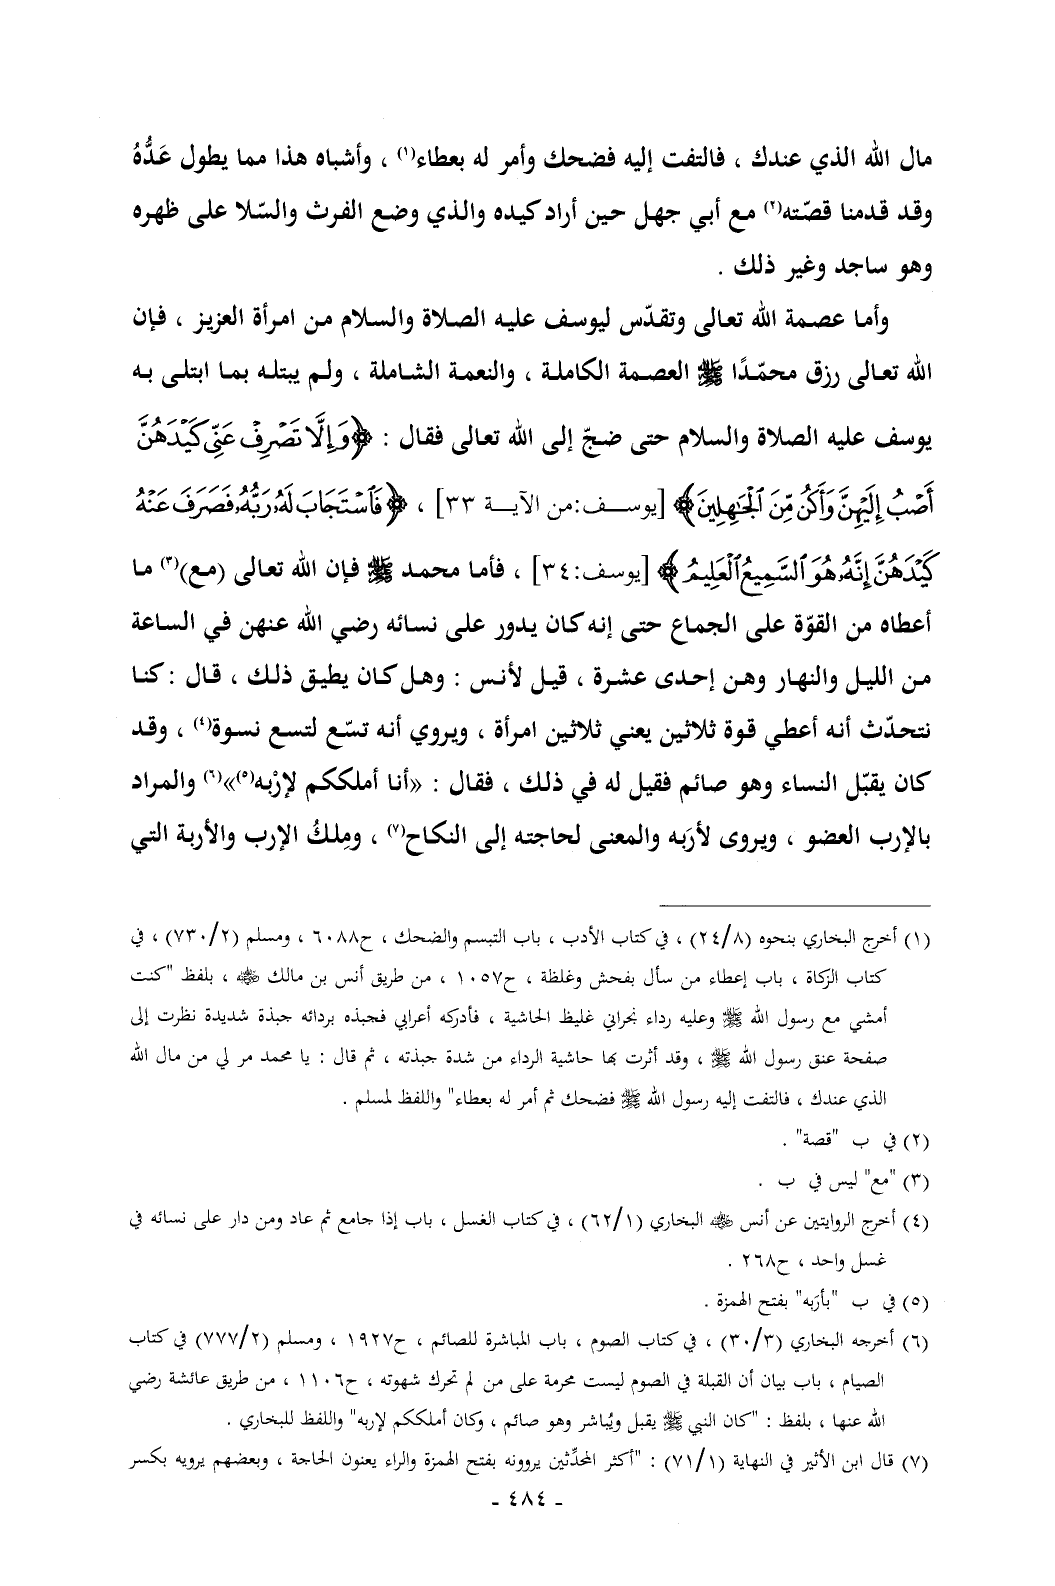 مال الله الذي عندك ، فالتفت إليه فضحك وأمر له بعطاء(١) ، وأشباه هذا مما يطول عَدُّهُ
وقد قدمنا قصّته(٢) مع أبي جهل حين أراد كيده والذي وضع الفرث والسّلا على ظهره
وهو ساجد وغير ذلك .
وأما عصمة الله تعالى وتقدّس ليوسف عليه الصلاة والسلام من امرأة العزيز ، فإن
الله تعالى رزق محمّدًا ﷺ العصمة الكاملة ، والنعمة الشاملة ، ولم يبتله بما ابتلى به
يوسف عليه الصلاة والسلام حتى ضجّ إلى الله تعالى فقال : ﴿وَإِلَّا تَصْرِفْ عَنِّي كَيْدَهُنَّ
أَصْبُ إِلَيْهِنَّ وَأَكُن مِّنَ ٱلْجَٰهِلِينَ﴾ [يوسف:من الآية ٣٣] ، ﴿فَٱسْتَجَابَ لَهُۥ رَبُّهُۥ فَصَرَفَ عَنْهُ
كَيْدَهُنَّ إِنَّهُۥ هُوَ ٱلسَّمِيعُ ٱلْعَلِيمُ﴾ [يوسف:٣٤] ، فأما محمد ﷺ فإن الله تعالى (مع)(٣) ما
أعطاه من القوّة على الجماع حتى إنه كان يدور على نسائه رضي الله عنهن في الساعة
من الليل والنهار وهن إحدى عشرة ، قيل لأنس : وهل كان يطيق ذلك ، قال : كنا
نتحدّث أنه أعطي قوة ثلاثين يعني ثلاثين امرأة ، ويروي أنه تسّع لتسع نسوة(٤) ، وقد
كان يقبّل النساء وهو صائم فقيل له في ذلك ، فقال : «أنا أملككم لإرْبه(٥)»(٦) والمراد
بالإرب العضو ، ويروى لأرَبه والمعنى لحاجته إلى النكاح(٧) ، ومِلكُ الإرب والأربة التي
(١) أخرج البخاري بنحوه (٢٤/٨) ، في كتاب الأدب ، باب التبسم والضحك ، ح٦٠٨٨ ، ومسلم (٧٣٠/٢) ، في
كتاب الزكاة ، باب إعطاء من سأل بفحش وغلظة ، ح١٠٥٧ ، من طريق أنس بن مالك ﷺ ، بلفظ "كنت
أمشي مع رسول الله ﷺ وعليه رداء نجراني غليظ الحاشية ، فأدركه أعرابي فجبذه بردائه جبذة شديدة نظرت إلى
صفحة عنق رسول الله ﷺ ، وقد أثرت بها حاشية الرداء من شدة جبذته ، ثم قال : يا محمد مر لي من مال الله
الذي عندك ، فالتفت إليه رسول الله ﷺ فضحك ثم أمر له بعطاء" واللفظ لمسلم .
(٢) في ب "قصة" .
(٣) "مع" ليس في ب .
(٤) أخرج الروايتين عن أنس ﷺ البخاري (٦٢/١) ، في كتاب الغسل ، باب إذا جامع ثم عاد ومن دار على نسائه في
غسل واحد ، ح٢٦٨ .
(٥) في ب "بأرَبه" بفتح الهمزة .
(٦) أخرجه البخاري (٣٠/٣) ، في كتاب الصوم ، باب المباشرة للصائم ، ح١٩٢٧ ، ومسلم (٧٧٧/٢) في كتاب
الصيام ، باب بيان أن القبلة في الصوم ليست محرمة على من لم تحرك شهوته ، ح١١٠٦ ، من طريق عائشة رضي
الله عنها ، بلفظ : "كان النبي ﷺ يقبل ويُباشر وهو صائم ، وكان أملككم لإربه" واللفظ للبخاري .
(٧) قال ابن الأثير في النهاية (٧١/١) : "أكثر المحدِّثين يروونه بفتح الهمزة والراء يعنون الحاجة ، وبعضهم يرويه بكسر
- ٤٨٤ -